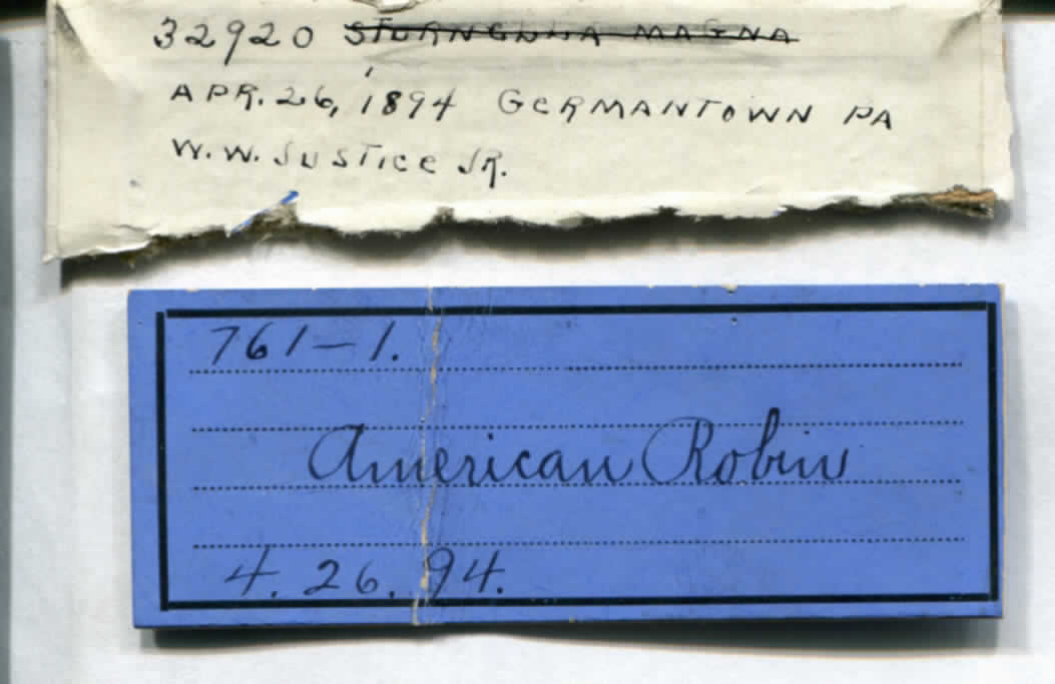 32920 STURNELLA MAGNA
APR. 26, 1894 GERMANTOWN PA
W. W. JUSTICE JR.
761-1.
American Robin
4. 26. 94.